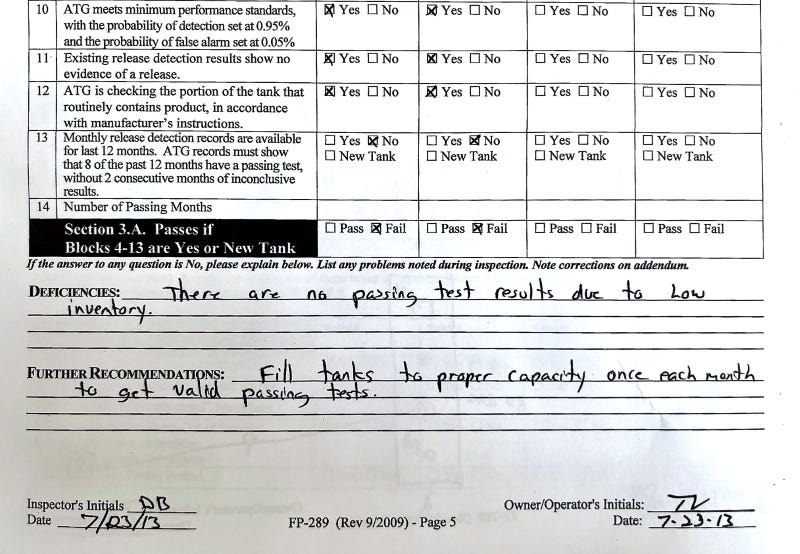 10 ATG meets minimum performance standards, ☒ Yes ☐ No ☒ Yes ☐ No ☐ Yes ☐ No ☐ Yes ☐ No
with the probability of detection set at 0.95%
and the probability of false alarm set at 0.05%
11 Existing release detection results show no ☒ Yes ☐ No ☒ Yes ☐ No ☐ Yes ☐ No ☐ Yes ☐ No
evidence of a release.
12 ATG is checking the portion of the tank that ☒ Yes ☐ No ☒ Yes ☐ No ☐ Yes ☐ No ☐ Yes ☐ No
routinely contains product, in accordance
with manufacturer's instructions.
13 Monthly release detection records are available ☐ Yes ☒ No ☐ Yes ☒ No ☐ Yes ☐ No ☐ Yes ☐ No
for last 12 months. ATG records must show ☐ New Tank ☐ New Tank ☐ New Tank ☐ New Tank
that 8 of the past 12 months have a passing test,
without 2 consecutive months of inconclusive
results.
14 Number of Passing Months
Section 3.A. Passes if ☐ Pass ☒ Fail ☐ Pass ☒ Fail ☐ Pass ☐ Fail ☐ Pass ☐ Fail
Blocks 4-13 are Yes or New Tank
If the answer to any question is No, please explain below. List any problems noted during inspection. Note corrections on addendum.
DEFICIENCIES: There are no passing test results due to Low
inventory.
FURTHER RECOMMENDATIONS: Fill tanks to proper capacity once each month
to get valid passing tests.
Inspector's Initials DB Owner/Operator's Initials: TV
Date 7/23/13 FP-289 (Rev 9/2009) - Page 5 Date: 7-23-13